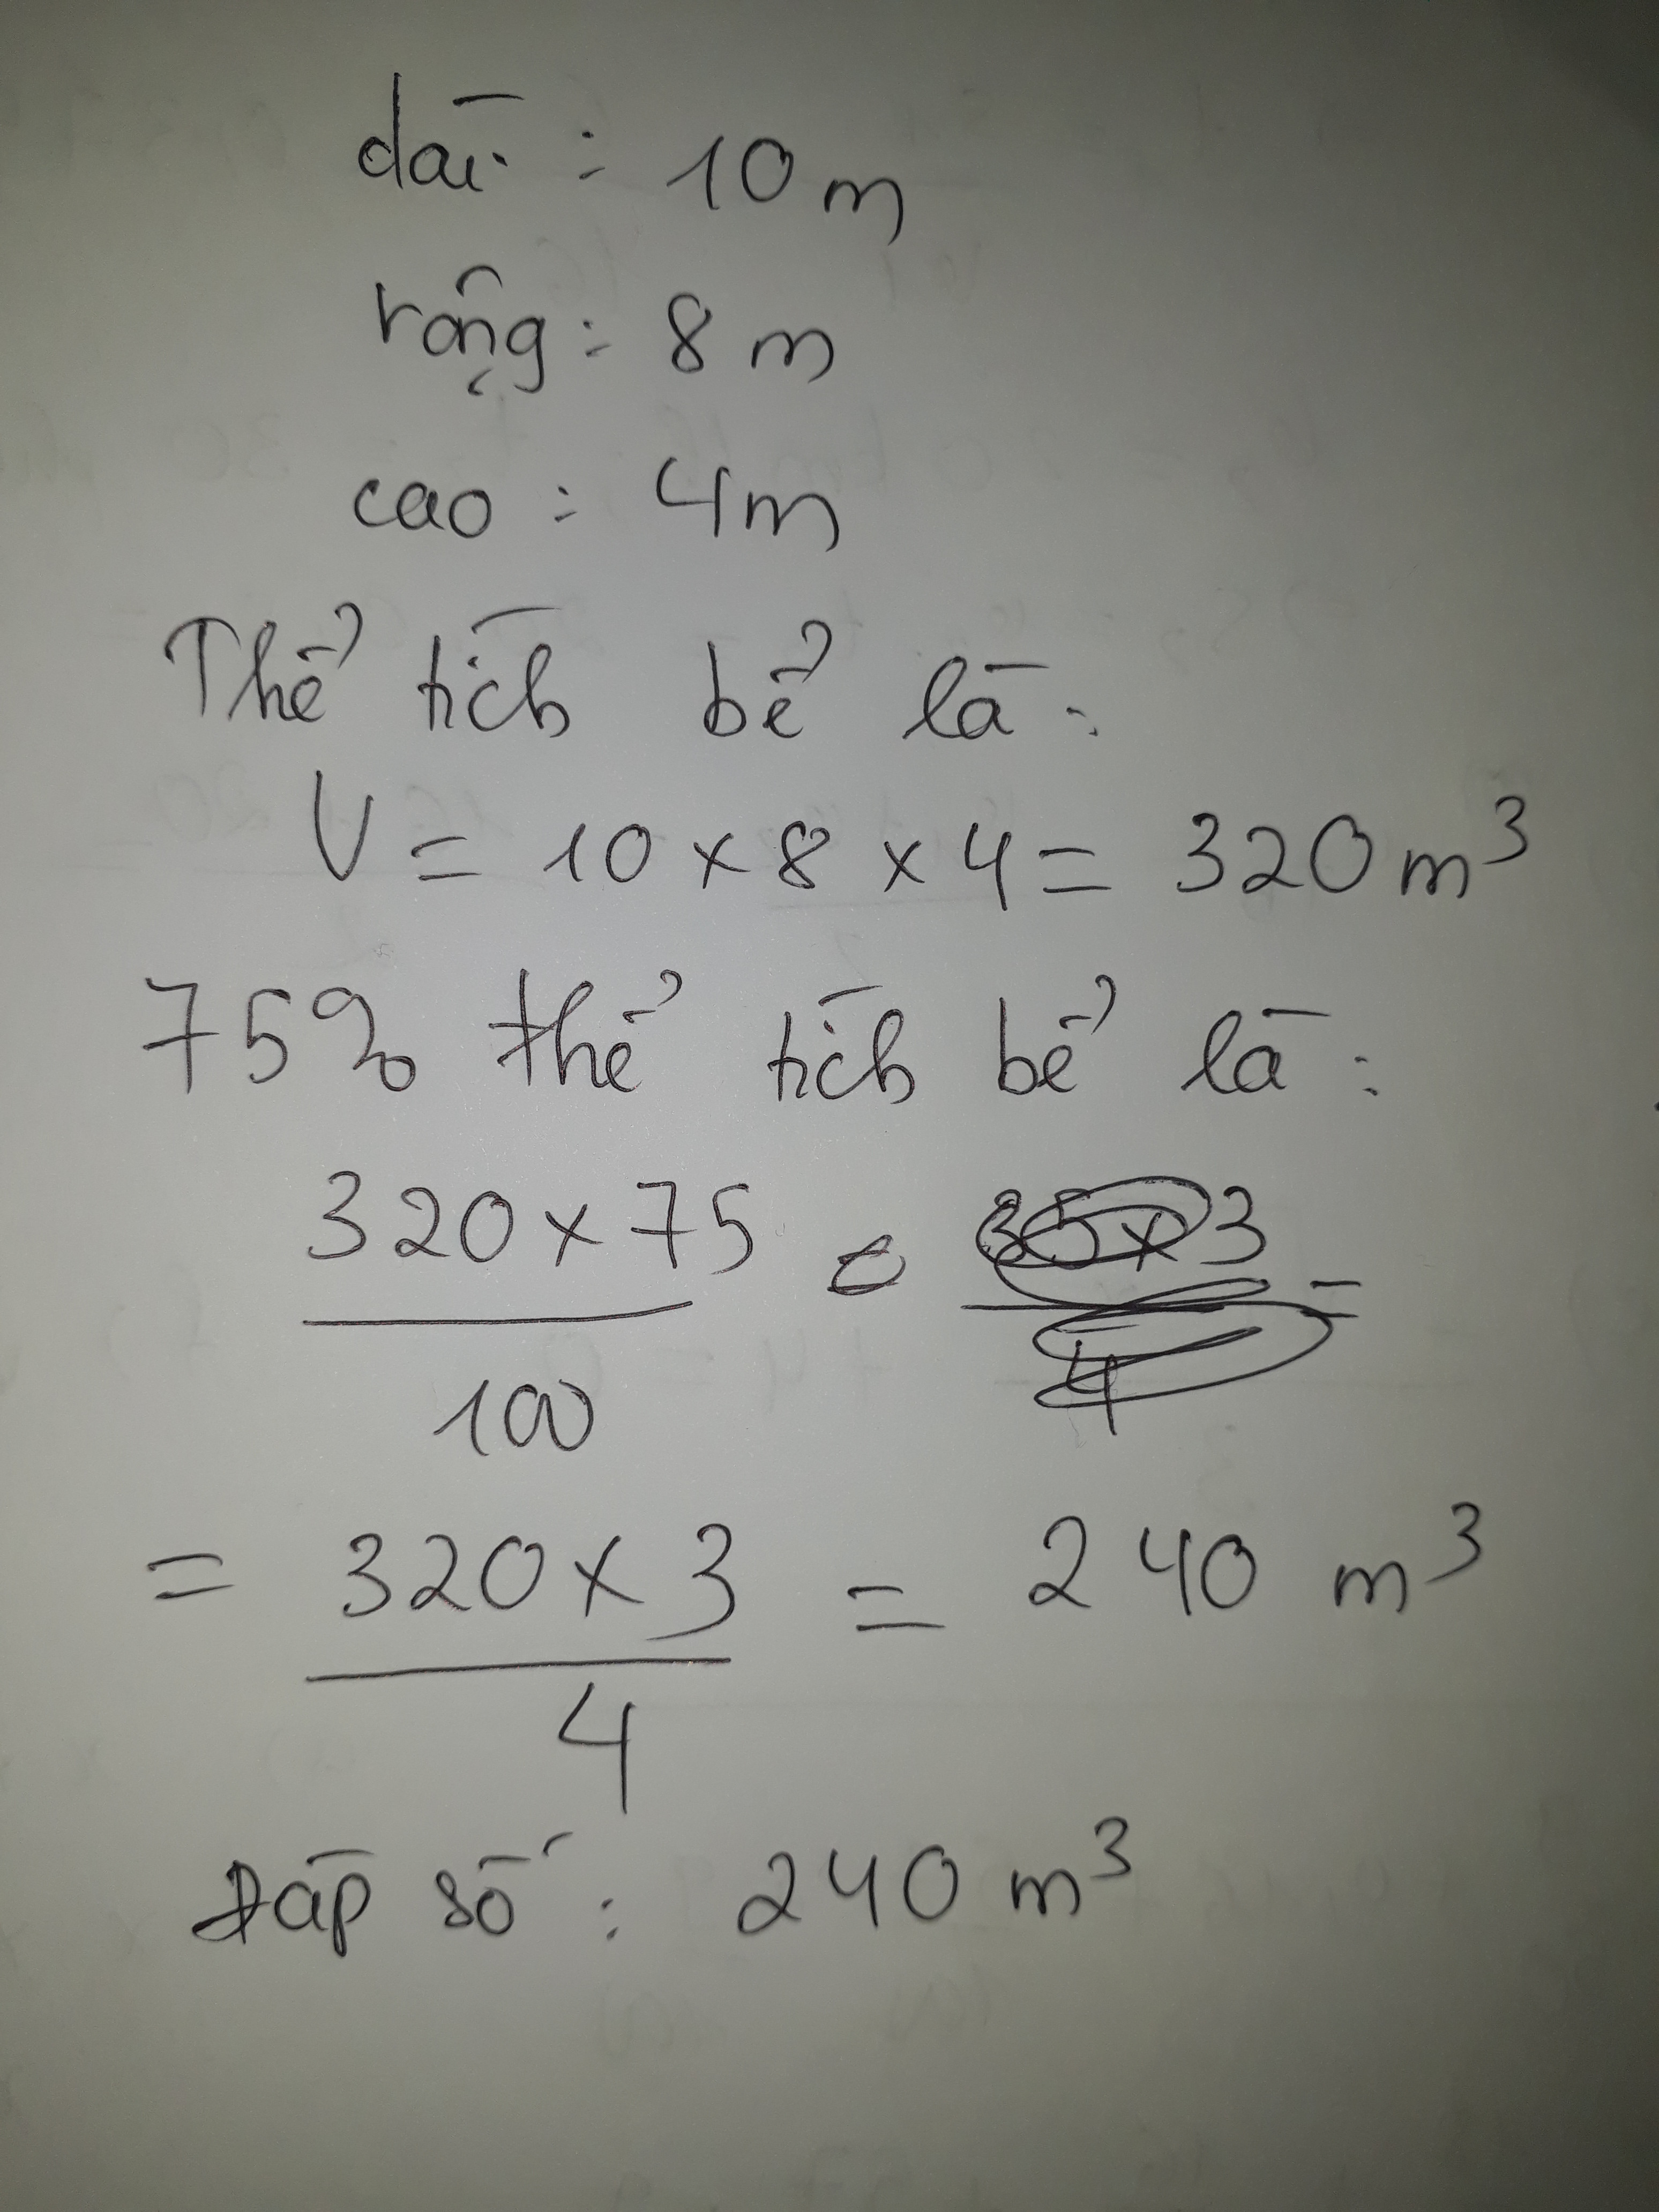 dài : 10 m
rộng : 8 m
cao : 4m
Thể tích bể là :
V = 10 x 8 x 4 = 320 m³
75% thể tích bể là :
320 x 75
100
= 320 x 3 = 240 m³
4
Đáp số : 240 m³